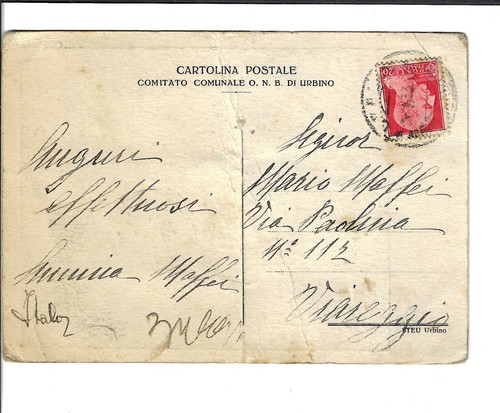 CARTOLINA POSTALE
COMITATO COMUNALE O. N. B. DI URBINO
Auguri
affettuosi
Maffei
Italo
Signor
Mario Maffei
Via Padova
N° 112
Viareggio
STEU Urbino